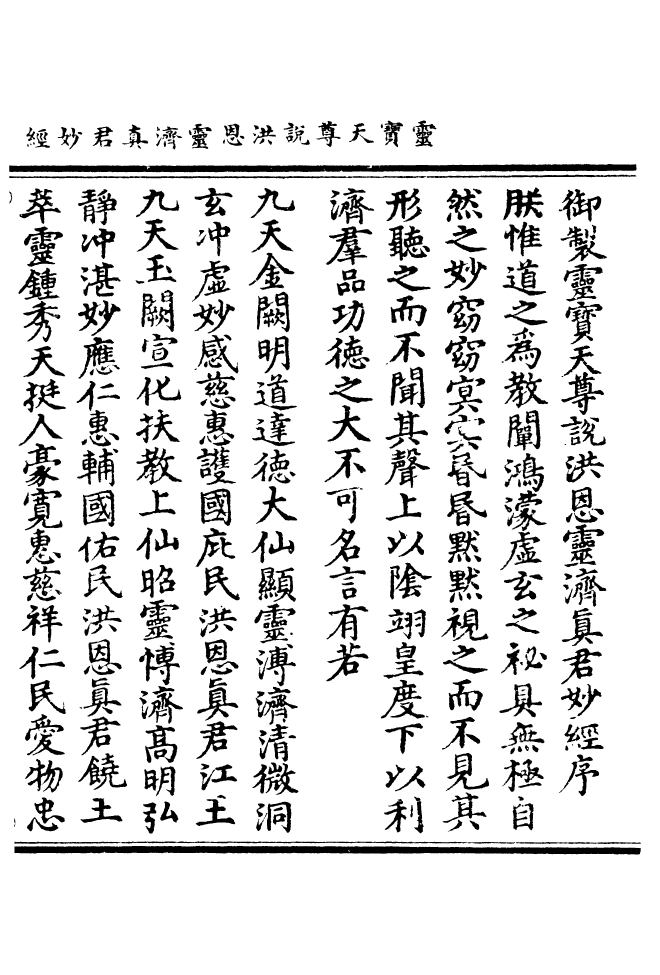 靈寶天尊說洪恩靈濟真君妙經
御製靈寶天尊說洪恩靈濟眞君妙經序
朕惟道之爲教闡鴻濛虛玄之祕具無極自
然之妙窈窈冥冥昏昏默默視之而不見其
形聽之而不聞其聲上以陰翊皇度下以利
濟羣品功德之大不可名言有若
九天金闕明道達德大仙顯靈溥濟清微洞
玄冲虛妙感慈惠護國庇民洪恩眞君江王
九天玉闕宣化扶教上仙昭靈博濟高明弘
靜冲湛妙應仁惠輔國佑民洪恩眞君饒王
萃靈鍾秀天挺人豪寬惠慈祥仁民愛物忠